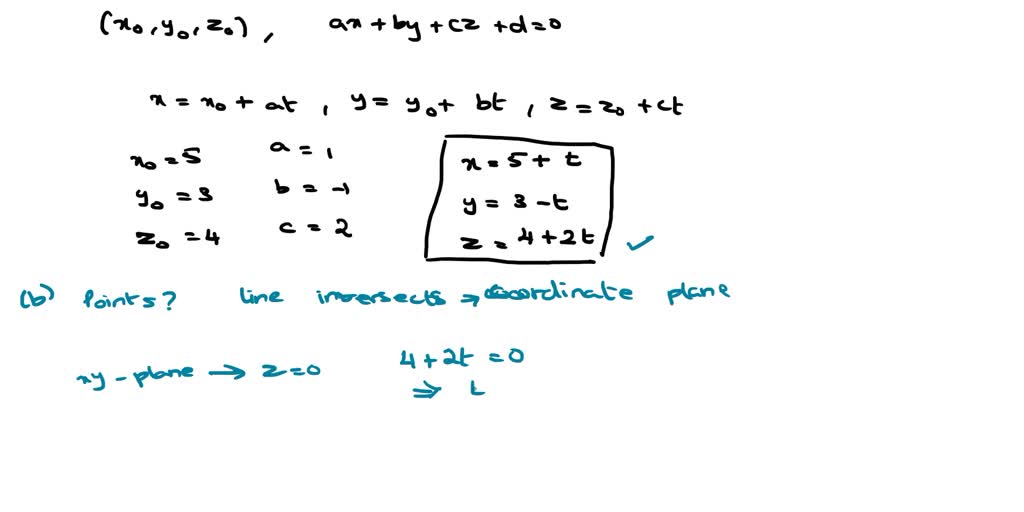 (x₀, y₀, z₀), ax + by + cz + d = 0
x = x₀ + at, y = y₀ + bt, z = z₀ + ct
x₀ = 5 a = 1 x = 5 + t
y₀ = 3 b = -1 y = 3 - t
z₀ = 4 c = 2 z = 4 + 2t ✓
(b) Points? line intersects → coordinate plane
xy - plane → z = 0 4 + 2t = 0
⇒ t